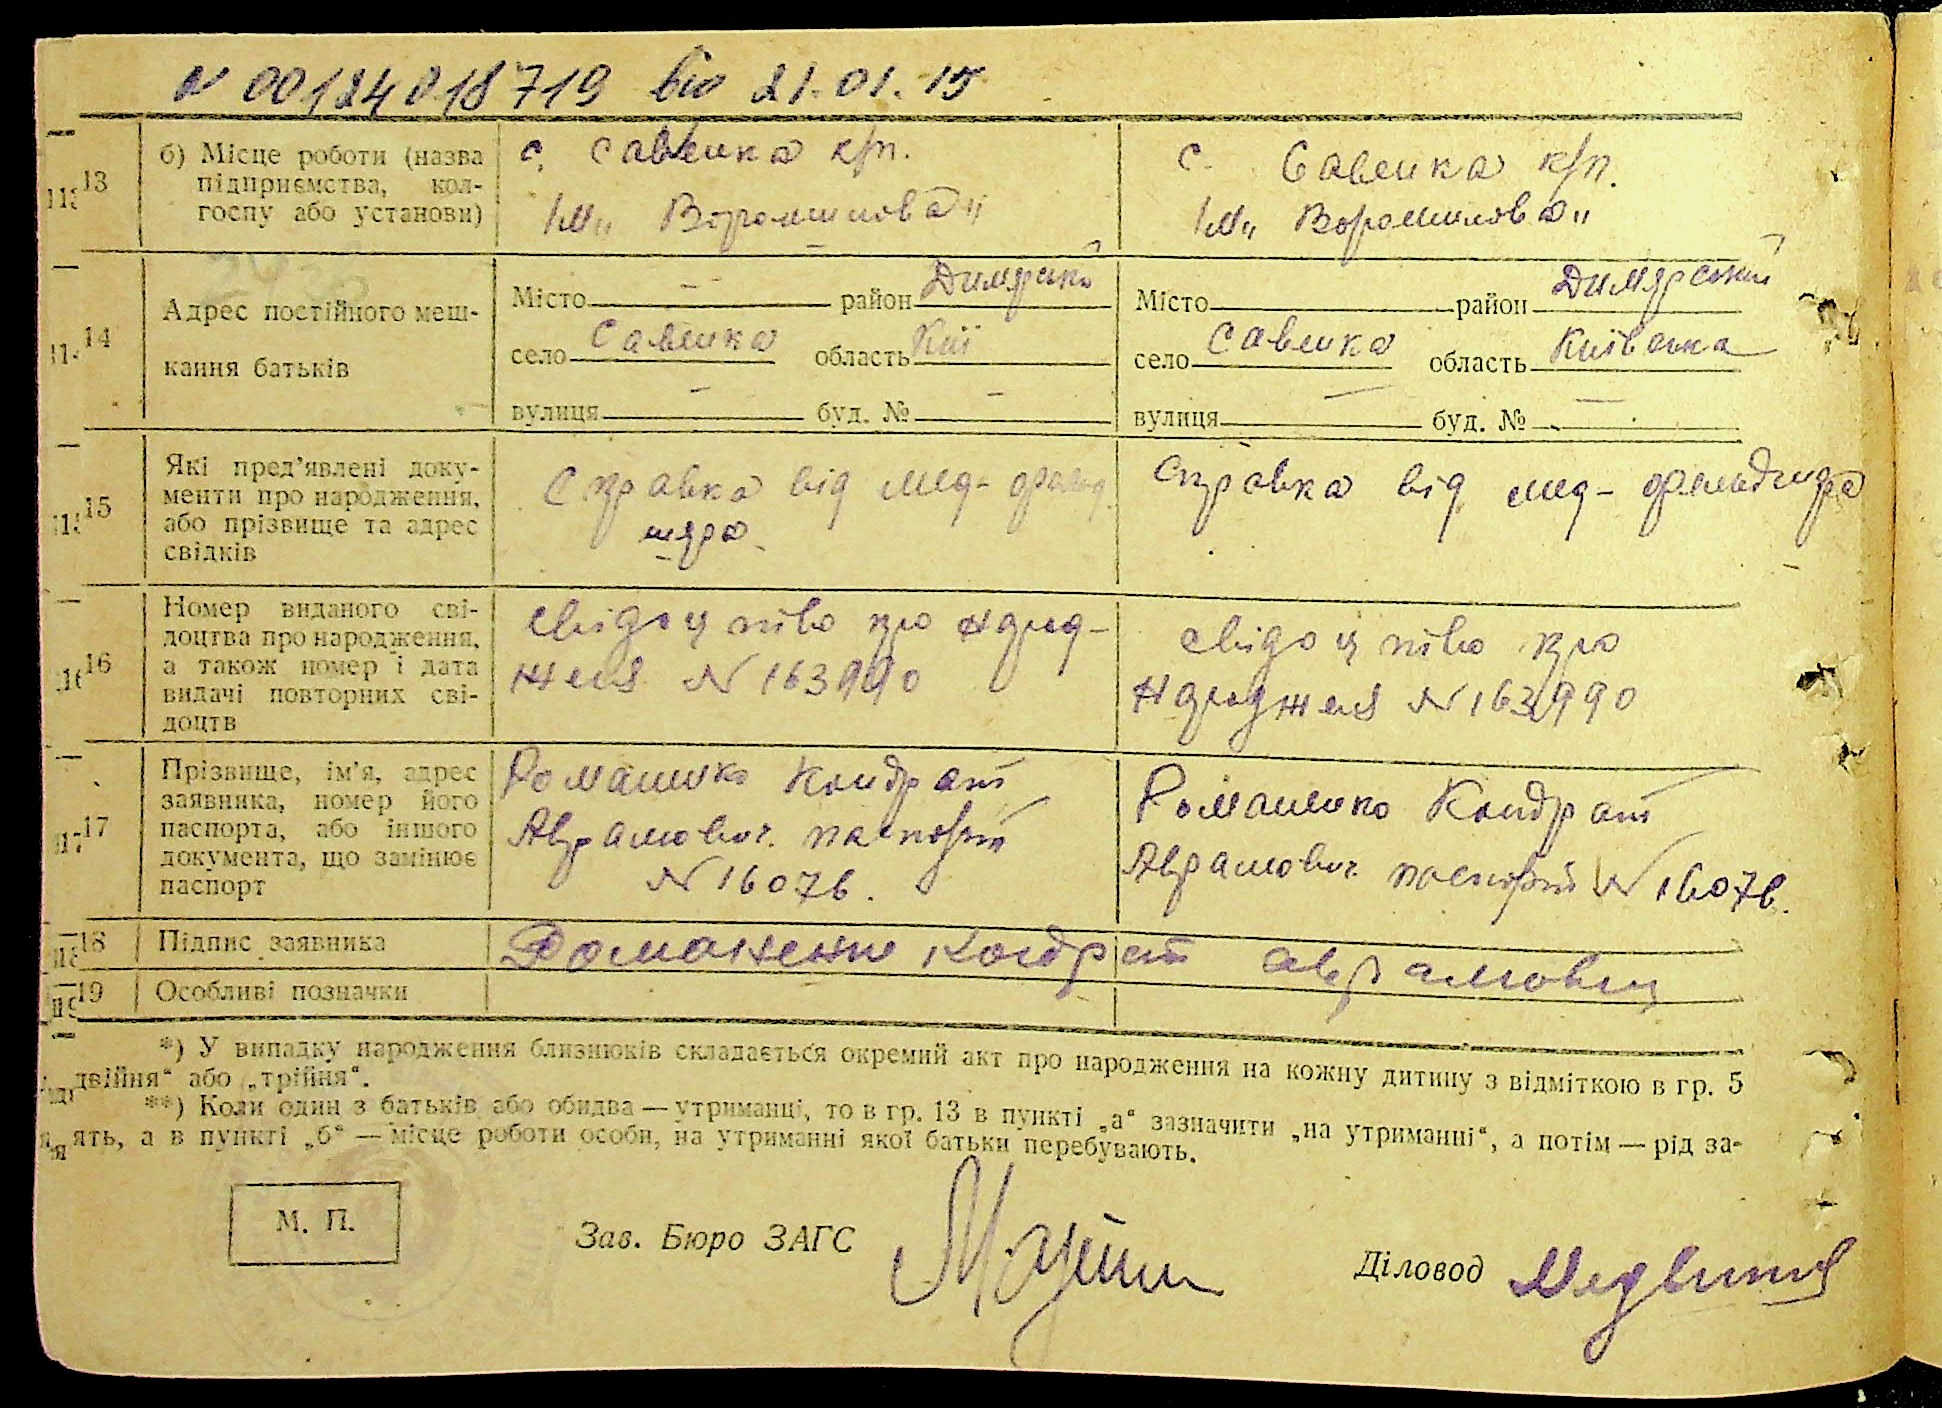 № 00124018719 від 21.01.15
13
б) Місце роботи (назва
підприємства, кол-
госпу або установи)
с. Савенка к/п.
Ім„ Ворошилова"
с. Савенка к/п.
Ім„ Ворошилова"
14
Адрес постійного меш-
кання батьків
Місто — район Димярськ
село Савенка область Киї
вулиця — буд. № —
Місто район Димярський
село Савенка область Київська
вулиця — буд. № —
15
Які пред'явлені доку-
менти про народження,
або прізвище та адрес
свідків
Справка від мед-
шяра
Справка від мед-
16
Номер виданого сві-
доцтва про народження,
а також номер і дата
видачі повторних сві-
доцтв
свідоцтво про
№ 163990
свідоцтво про
№ 163990
17
Прізвище, ім'я, адрес
заявника, номер його
паспорта, або іншого
документа, що замінює
паспорт
Романенко Кондрат
Аврамович. паспорт
№ 16076.
Романенко Кондрат
Аврамович паспорт № 16076.
18
Підпис заявника
Романенко Кондрат Аврамовиц
19
Особливі позначки
*) У випадку народження близнюків складається окремий акт про народження на кожну дитину з відміткою в гр. 5
„двійня“ або „трійня“.
**) Коли один з батьків або обидва — утриманці, то в гр. 13 в пункті „а“ зазначити „на утриманні“, а потім — рід за-
ять, а в пункті „б“ — місце роботи особи, на утриманні якої батьки перебувають.
М. П.
Зав. Бюро ЗАГС
Діловод